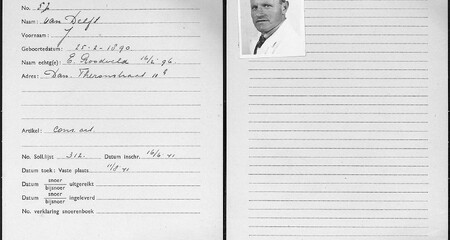 No. 52
Naam: van Delft
Voornaam: J
Geboortedatum: 25-2-1890
Naam echtg(e): E. Roodveld 16/2 96
Adres: Dan. Theronstraat 11 ᵉ
Artikel: Cons. art.
No. Soll.lijst 312- Datum inschr. 16/4 41
Datum toek: Vaste plaats 11/8 41
Datum snoer
bijsnoer uitgereikt
Datum snoer
bijsnoer ingeleverd
No. verklaring snoerenboek